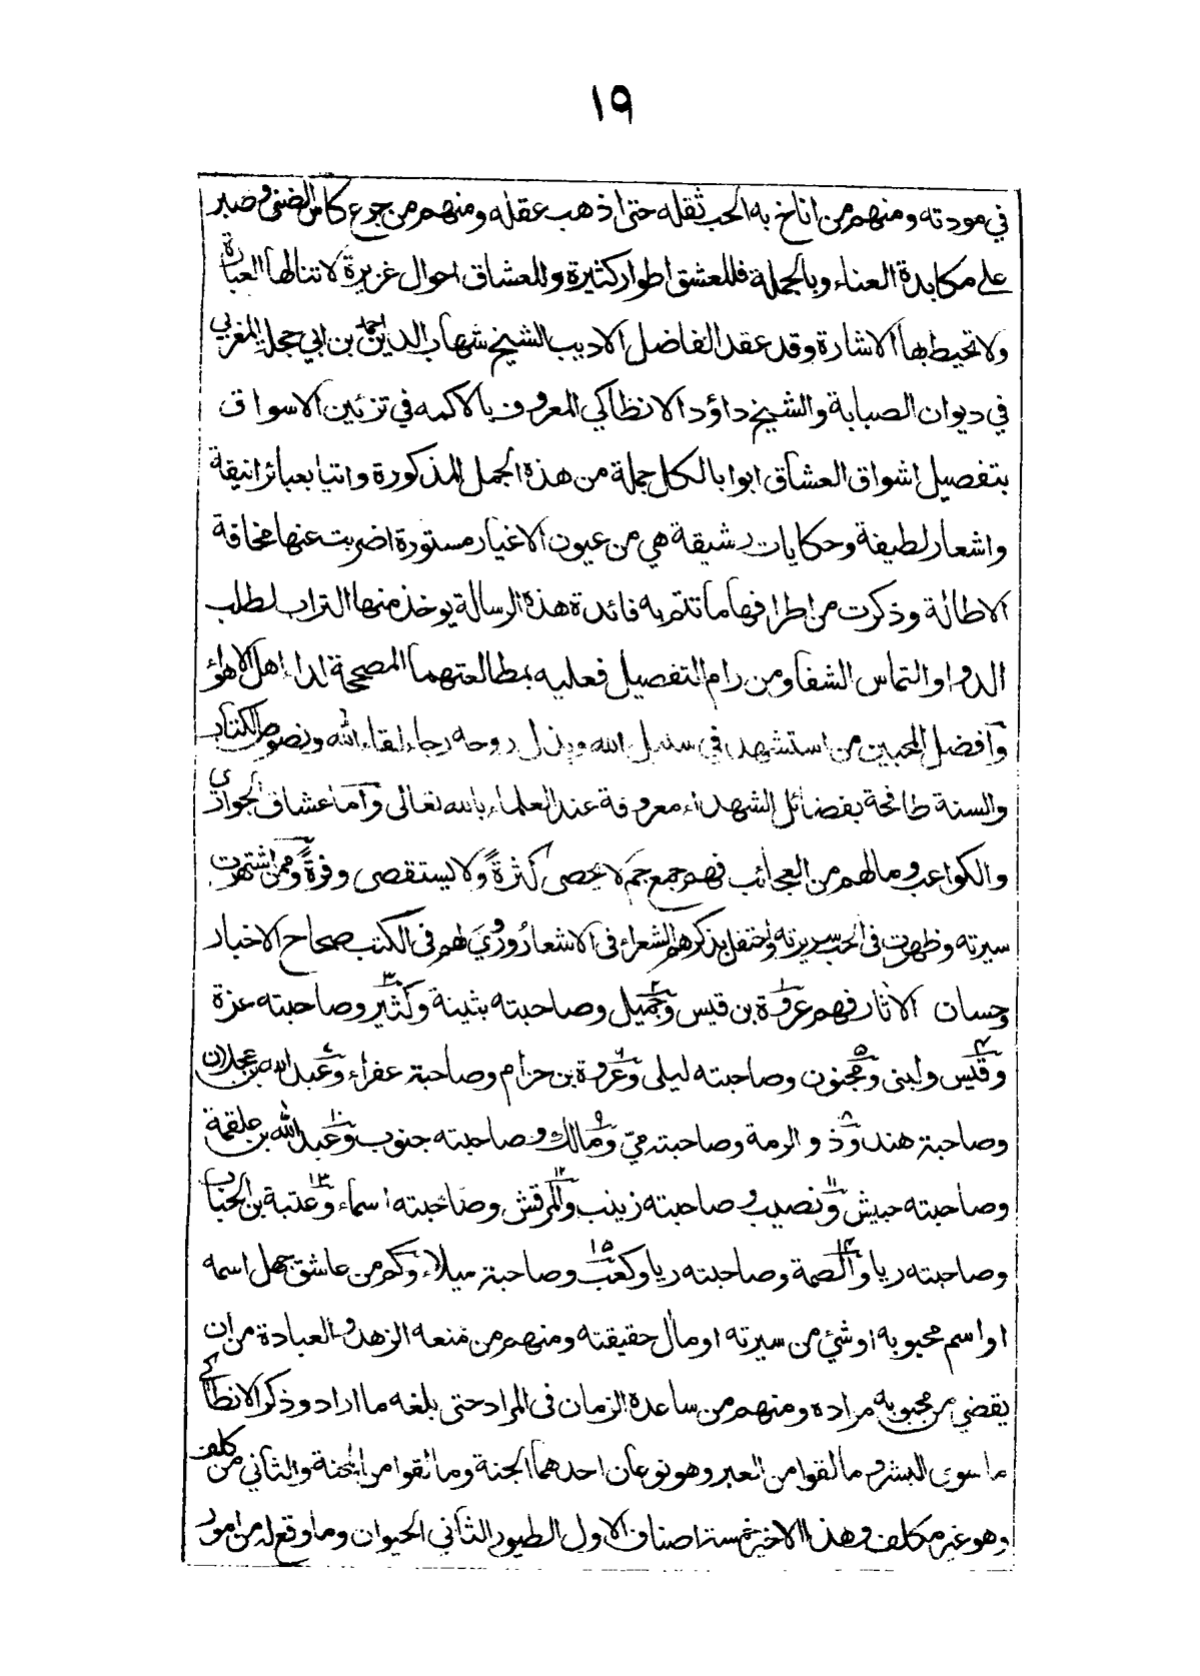 ١٩
في مودته ومنهم من اناخ به الحب ثقله حتى اذهب عقله ومنهم من جرع كاس الضنى وصبر
على مكابدة العناء وبالجملة فللعشق اطوار كثيرة وللعشاق احوال غزيرة لا تنالها العبارة
ولا تحيط بها الاشارة وقد عقد الفاضل الاديب الشيخ شهاب الدين احمد بن ابي حجلة المغربي
في ديوان الصبابة والشيخ داؤد الانطاكي المعروف بالاكمه في تزئين الاسواق
بتفصيل اشواق العشاق ابوابا لكل جملة من هذه الجمل المذكورة واتيا بعبائر انيقة
واشعار لطيفة وحكايات رشيقة هي من عيون الاغيار مستورة اضربت عنها مخافة
الاطالة وذكرت من اطرافها ما تتم به فائدة هذه الرسالة يوخذ منها التراب لطلب
الدواء والتماس الشفا ومن رام التفصيل فعليه بمطالعتهما المصححة لداء اهل الاهواء
وافضل المحبين من استشهد في سبيل الله وبذل روحه رجاء لقاء الله ونصوص الكتاب
والسنة طافحة بفضائل الشهداء معروفة عند العلماء بالله تعالى واما عشاق الجواري
والكواعب وما لهم من العجائب فهم جمع جم لا يحصى كثرةً ولا يستقصى وفرةً وممن اشتهرت
سيرته وظهرت فى الحب سريرته واحتفل بذكرهم الشعراء فى الاشعار ورُوِيَ لهم فى الكتب صحاح الاخبار
وحسان الاثار فهم عروة بن قيس ١ وجميل ٢ وصاحبته بثينة وكثير ٣ وصاحبته عزة
وقيس ٤ ولبنى ومجنون ٥ وصاحبته ليلى وعروة ٦ بن حزام وصاحبة عفراء وعبد الله ٧ بن عجلان
وصاحبة هند وذو ٨ الرمة وصاحبته مي ومالك ٩ وصاحبته جنوب وعبد الله ١٠ بن علقمة
وصاحبته حبيش ونصيب ١١ وصاحبته زينب والمرقش ١٢ وصاحبته اسماء وعتبة ١٣ بن الحباب
وصاحبته ريا والصمة ١٤ وصاحبته ريا وكعب ١٥ وصاحبة ميلاء وكم من عاشق جهل اسمه
او اسم محبوبه او شئ من سيرته او مال حقيقته ومنهم من منعه الزهد والعبادة من ان
يقضي من محبوبه مراده ومنهم من ساعده الزمان فى المراد حتى بلغه ما اراد وذكر الانطاكي
ما سوى البشر وما لقوا من العبر وهو نوعان احدهما الجنة وما لقوا من المحنة والثاني من كلف
وهو غير مكلف وهذا الاخير خمسة اصناف الاول الطيور الثاني الحيوان وما وقع له من امور